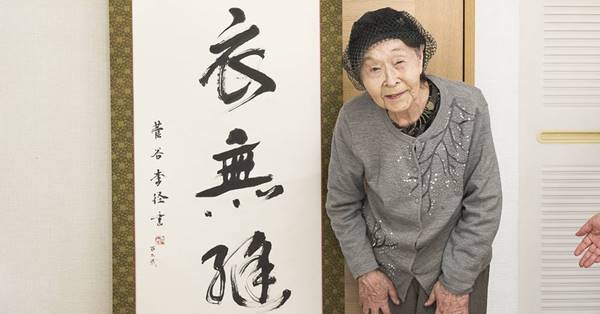 衣無縫
菅谷李径書